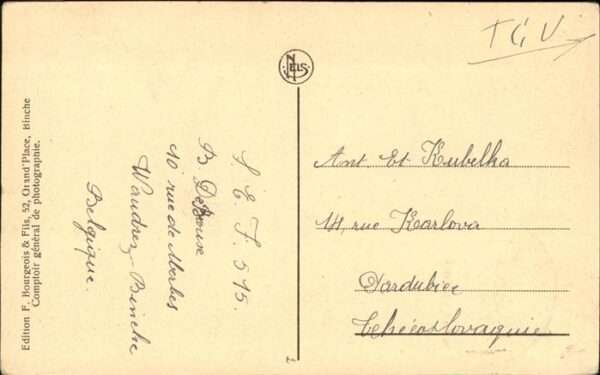 Edition F. Bourgeois & Fils, 52, Grand'Place, Binche
Comptoir général de photographie.
S. E. F. 515.
B. DeBouse
10 rue de Merbes
Waudrez-Binche
Belgique.
NELS
TGV
Ant Et Kubelka
14, rue Karlova
Pardubice
Tchécoslovaquie